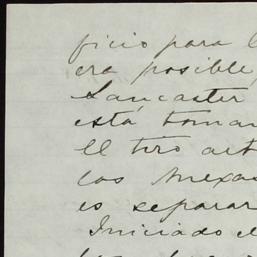 ficio para l
era posible,
Lancaster
está toman
el tiro art
los Anexas
es separar
Iniciado el